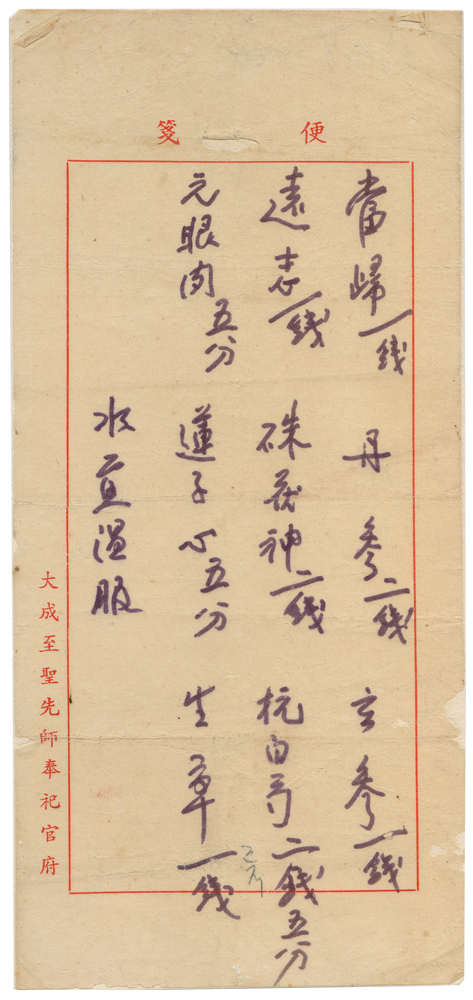 便箋
當歸一錢 丹參二錢 玄參一錢
遠志一錢 硃茯神二錢 杭白芍二錢五分
元眼肉五分 蓮子心五分 生草一錢
水煎溫服
大成至聖先師奉祀官府